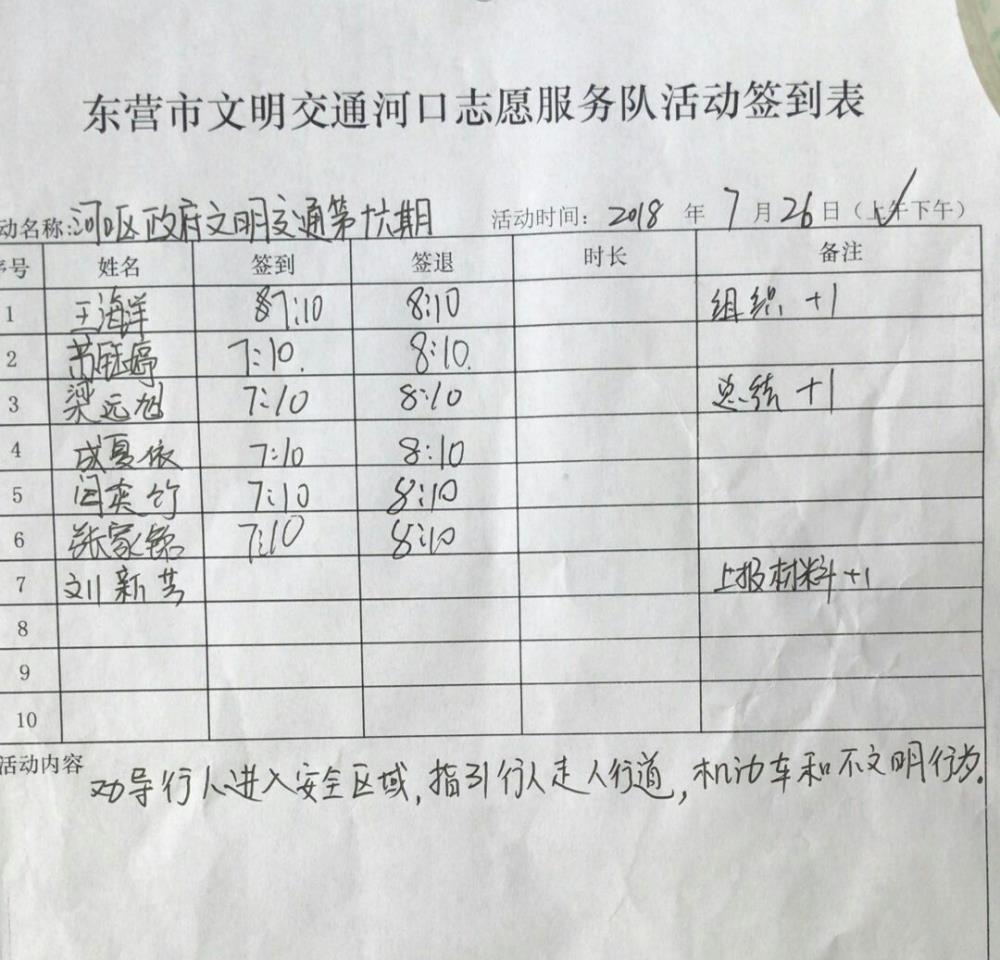 东营市文明交通河口志愿服务队活动签到表
动名称:河口区政府文明交通第十六期 活动时间: 2018 年 7 月 26 日（上午下午）
序号 姓名 签到 签退 时长 备注
1 王海洋 7:10 8:10 组织 +1
2 7:10. 8:10.
3 梁远旭 7:10 8:10 总结 +1
4 成夏依 7:10 8:10
5 闫奕竹 7:10 8:10
6 张家铭 7:10 8:10
7 刘新芸 上报材料+1
8
9
10
活动内容 劝导行人进入安全区域,指引行人走人行道,机动车和不文明行为.